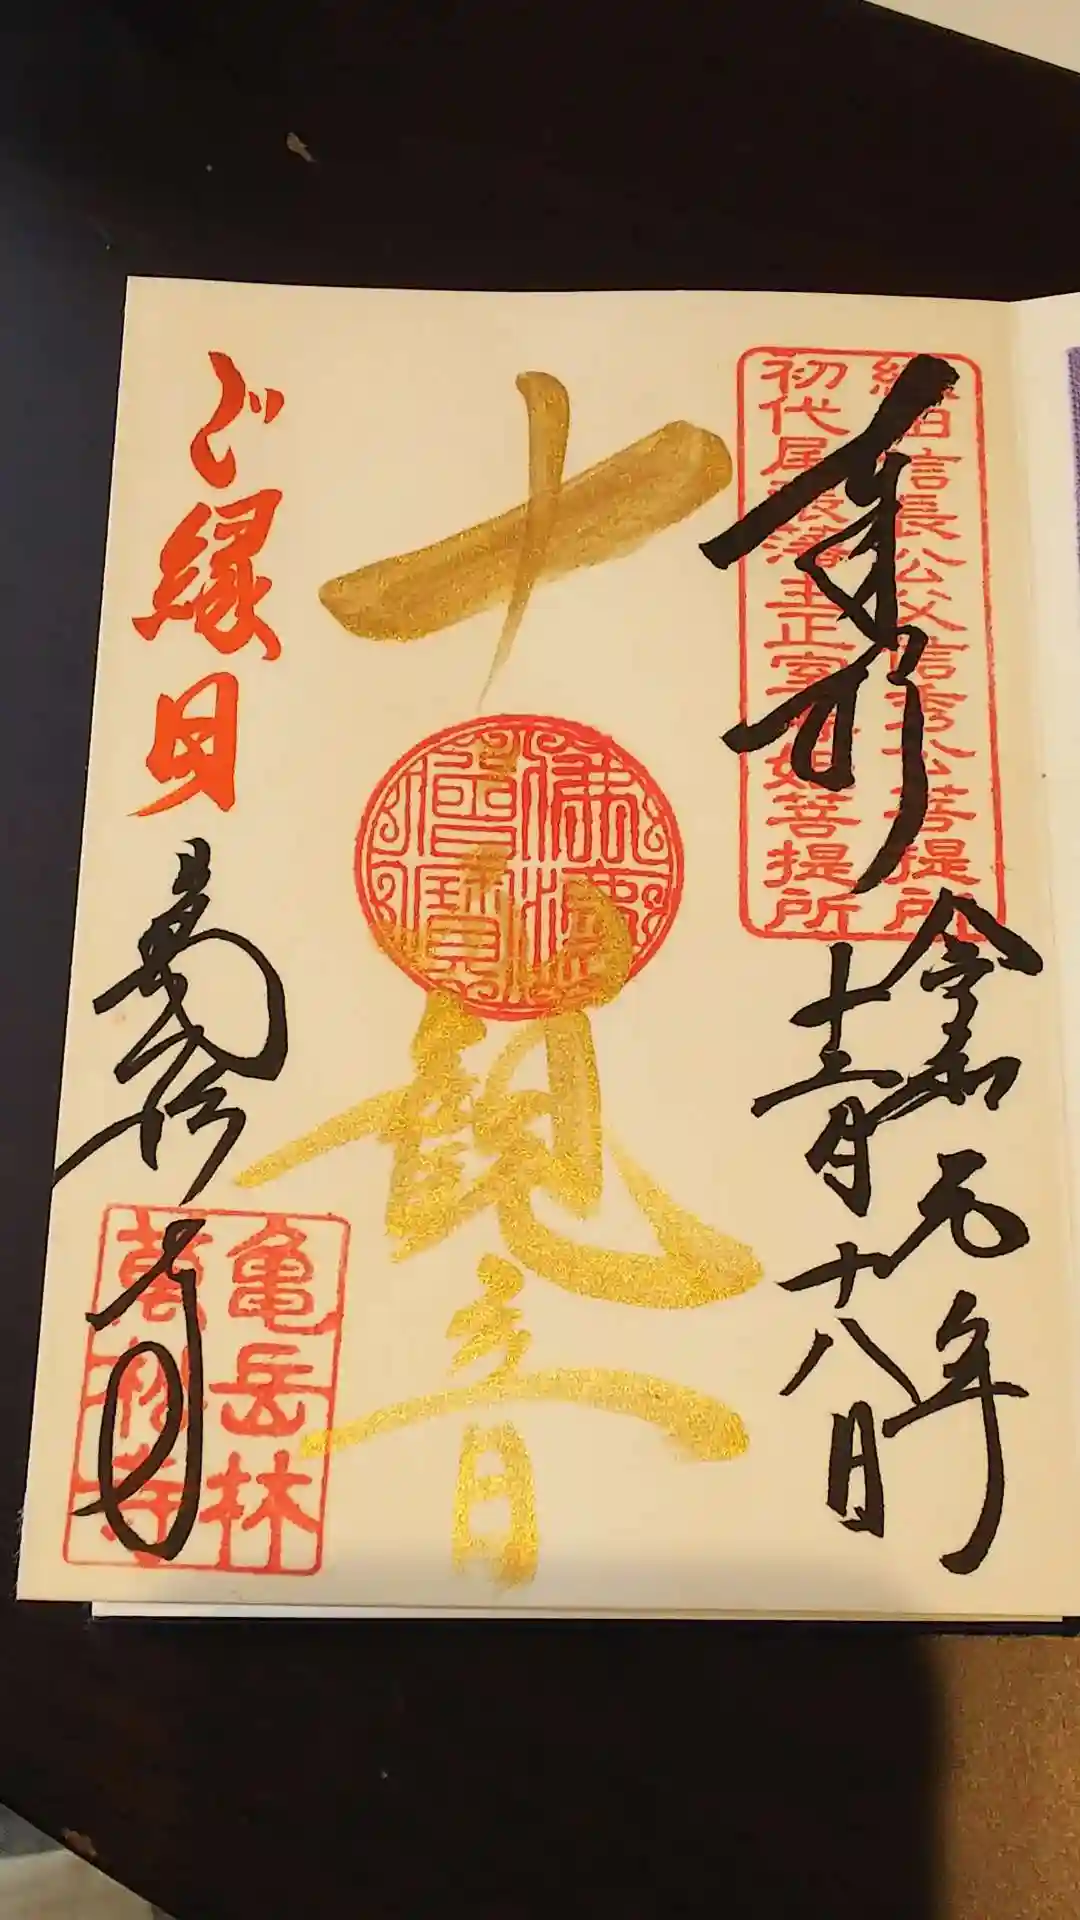 織田信長公父信秀公菩提所
初代尾張藩主正室春姫菩提所
奉拝
令和元年
十二月十八日
十一面観音
佛法
僧寶
ご縁日
萬松寺
亀岳林
萬松寺